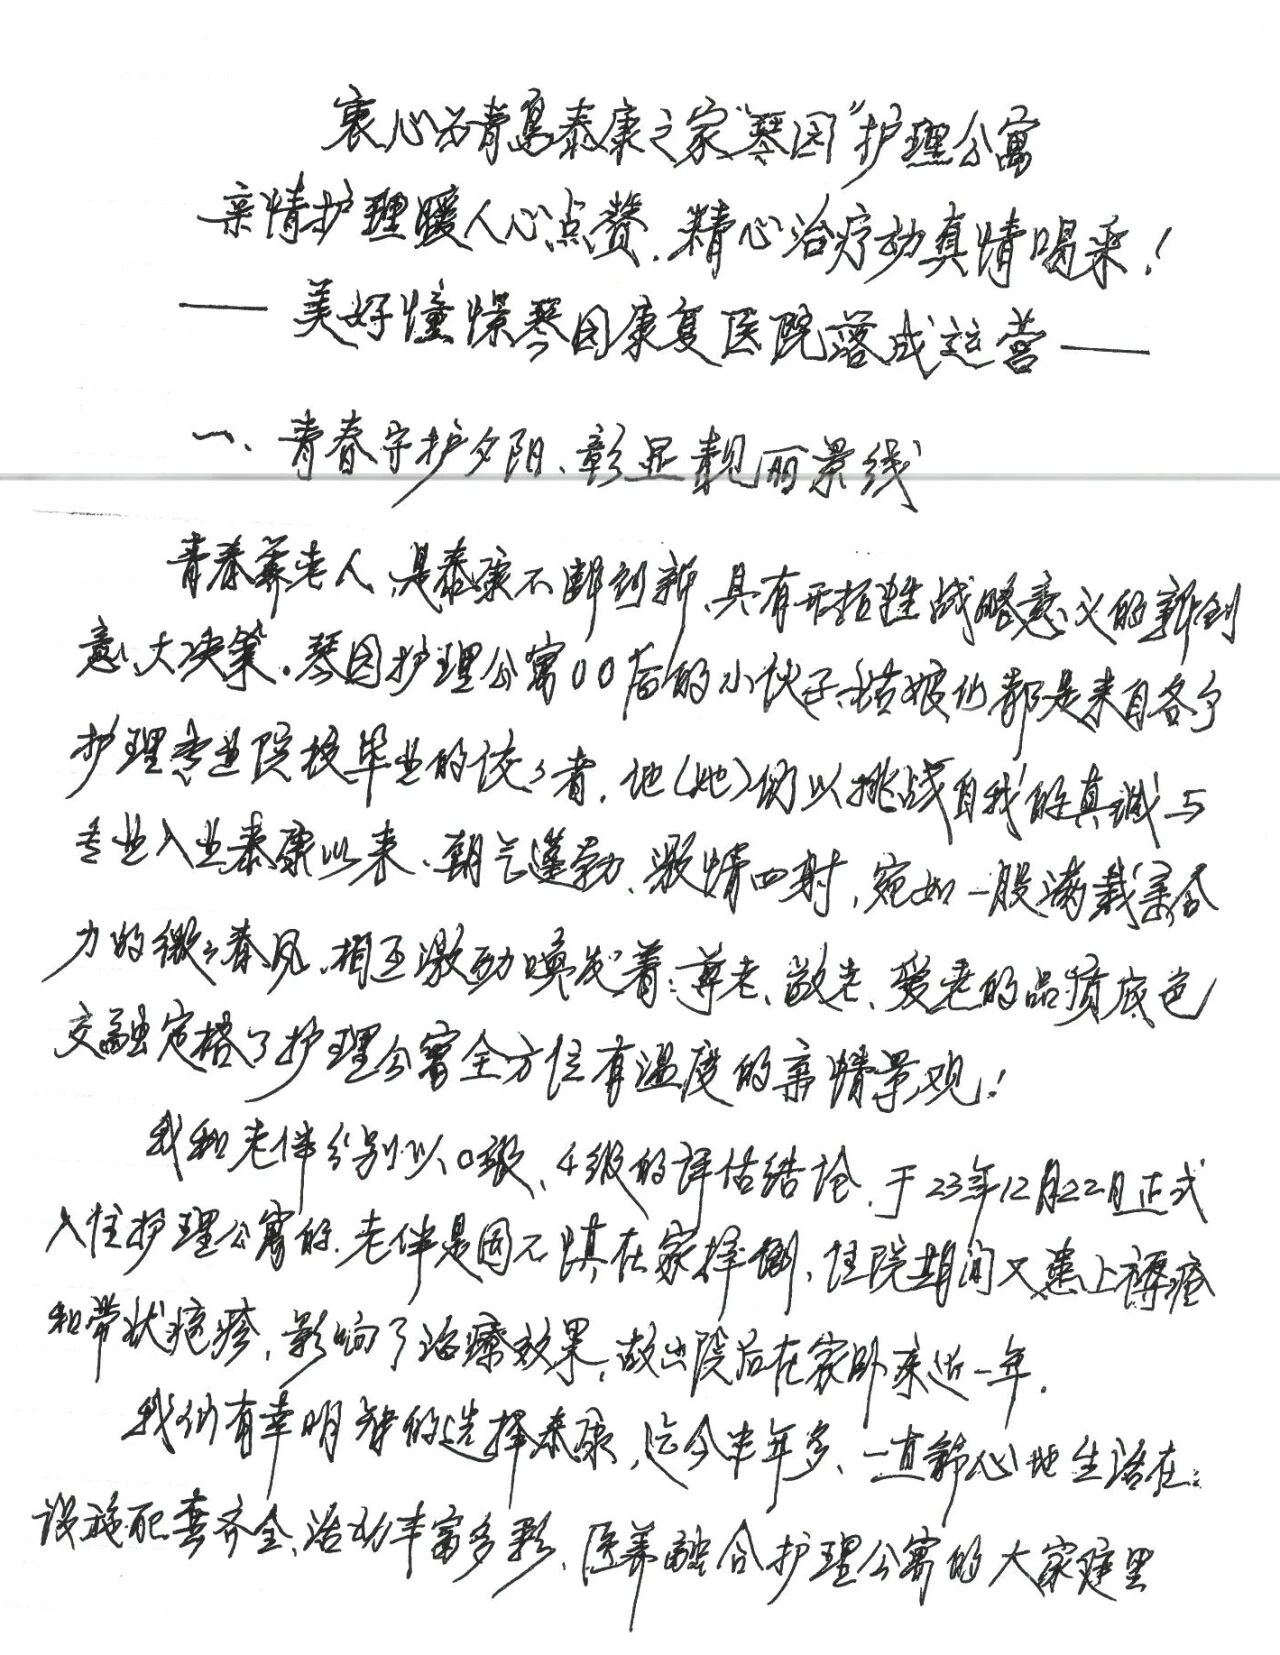 衷心为青岛泰康之家“琴园”护理公寓
亲情护理暖人心点赞，精心治疗动真情喝采！
——美好憧憬琴园康复医院落成运营——
一、青春守护夕阳、彰显靓丽景线
青春养老人，是泰康不断创新、具有开拓性战略意义的新创
意大决策。琴园护理公寓00后的小伙子、姑娘们都是来自各个
护理专业院校毕业的佼佼者，他(她)们以挑战自我的真诚与
专业入业泰康以来、朝气蓬勃、激情四射，宛如一股满载亲合
力的微微春风、相互激励焕发着：尊老、敬老、爱老的品质底色
交融定格了护理公寓全方位有温度的亲情景观！
我和老伴分别以0级、4级的评估结论，于23年12月22日正式
入住护理公寓的，老伴是因不慎在家摔倒，住院期间又患上褥疮
和带状疱疹，影响了治療效果，故出院后在家卧床近一年.
我们有幸明智的选择泰康，迄今半年多、一直舒心地生活在：
设施配套齐全、活动丰富多彩、医养融合护理公寓的大家庭里